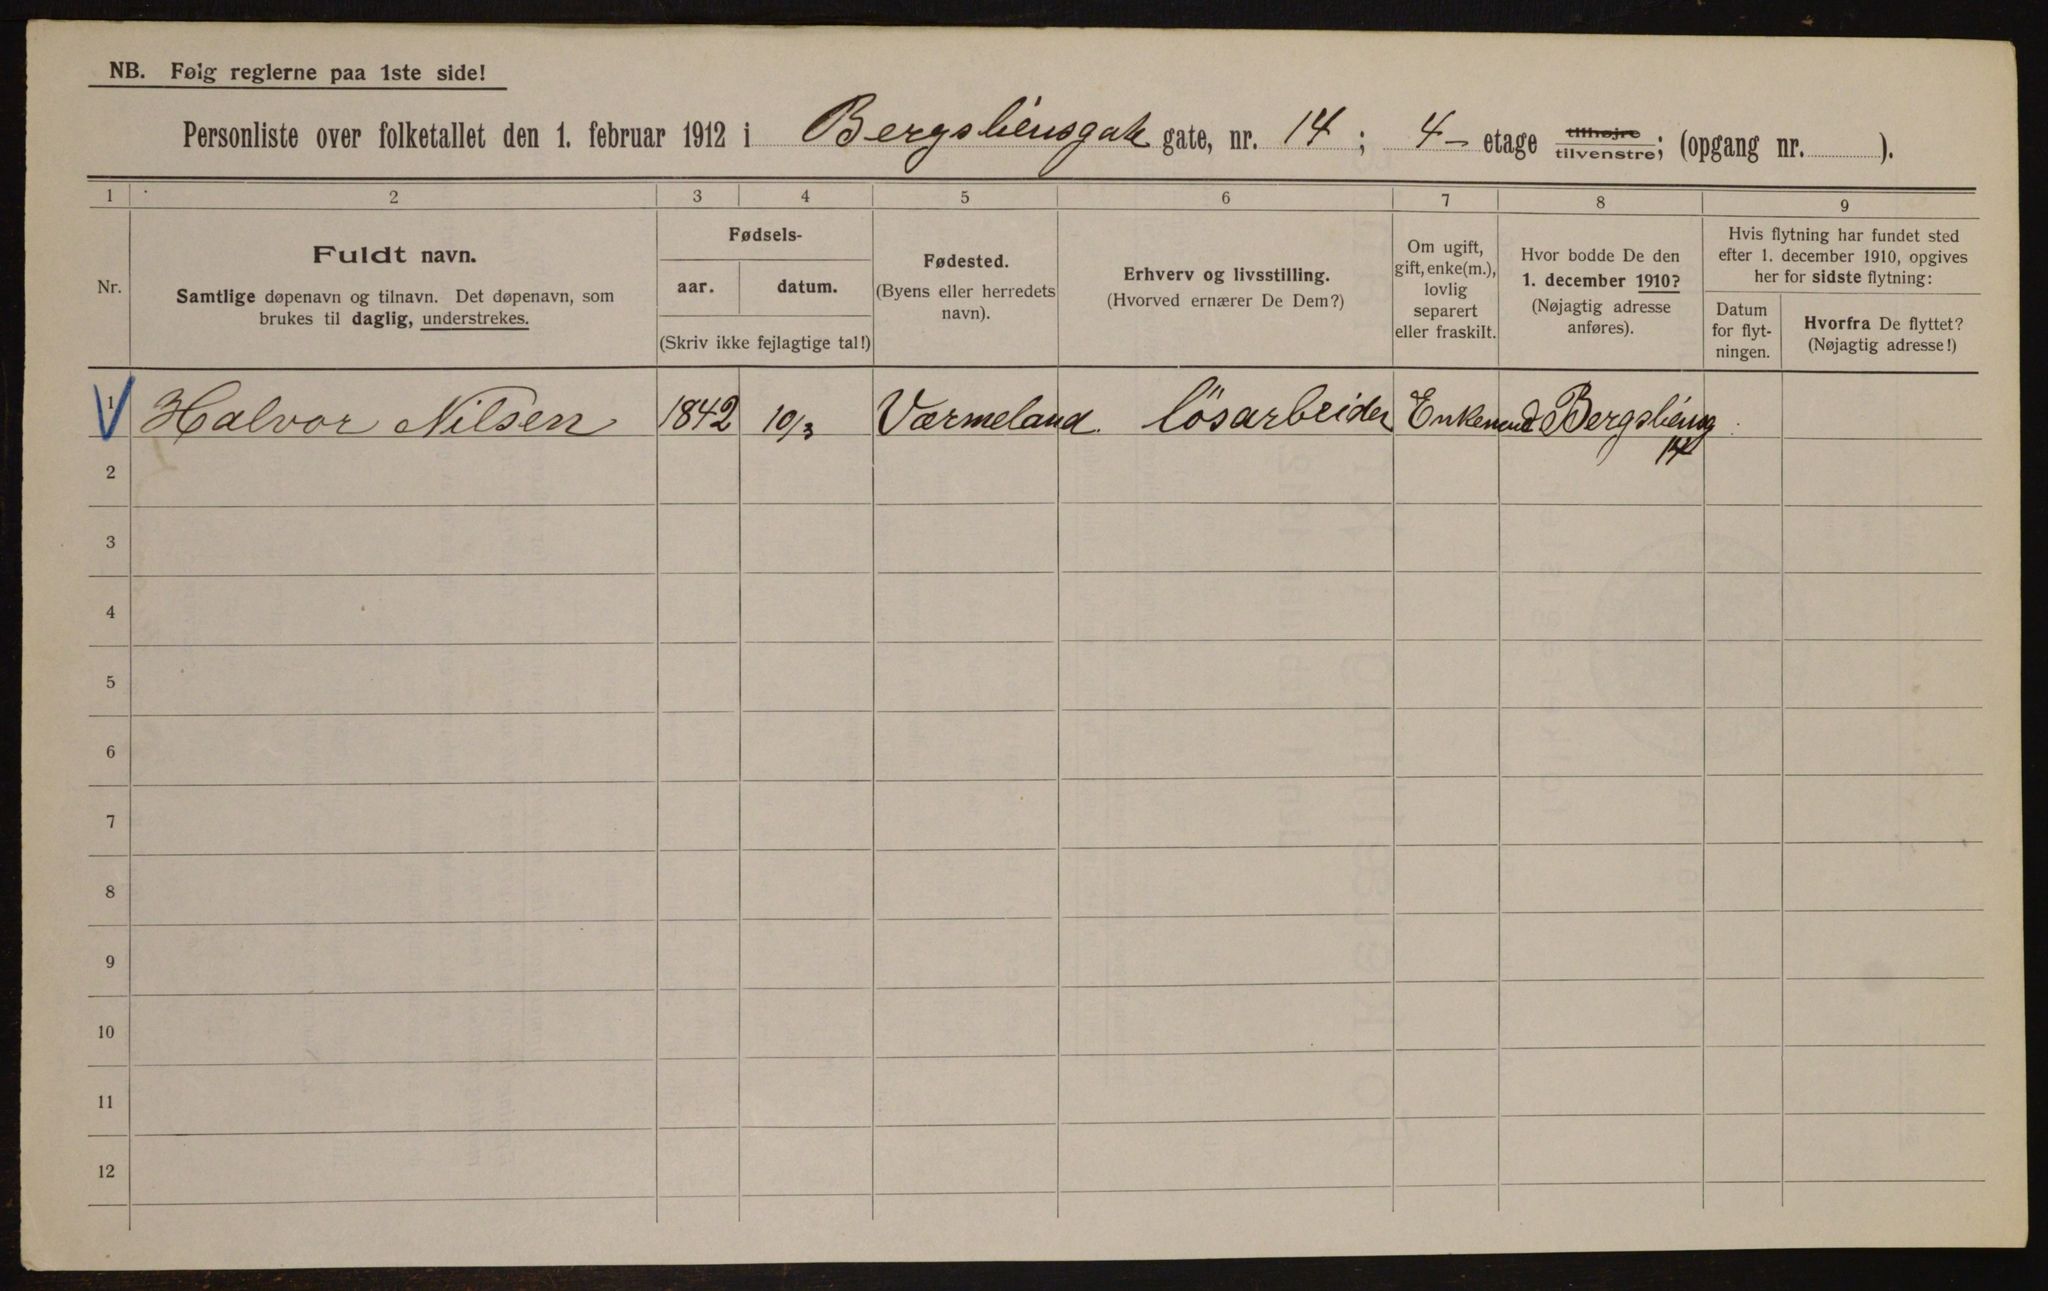 NB. Følg reglerne paa 1ste side!
Personliste over folketallet den 1. februar 1912 i Bergsliensgate gate, nr. 14; 4- etage tilhøjre tilvenstre; (opgang nr. ).
1 2 3 4 5 6 7 8 9
Nr.
Fuldt navn.
Samtlige døpenavn og tilnavn. Det døpenavn, som
brukes til daglig, understrekes.
Fødsels-
aar. datum.
(Skriv ikke fejlagtige tal!)
Fødested.
(Byens eller herredets
navn).
Erhverv og livsstilling.
(Hvorved ernærer De Dem?)
Om ugift,
gift, enke(m.),
lovlig
separert
eller fraskilt.
Hvor bodde De den
1. december 1910?
(Nøjagtig adresse
anføres).
Hvis flytning har fundet sted
efter 1. december 1910, opgives
her for sidste flytning:
Datum
for flyt-
ningen.
Hvorfra De flyttet?
(Nøjagtig adresse!)
1 Halvor Nilsen 1842 10/3 Værmeland. løsarbeider Enkemand Bergslieng
14
2
3
4
5
6
7
8
9
10
11
12